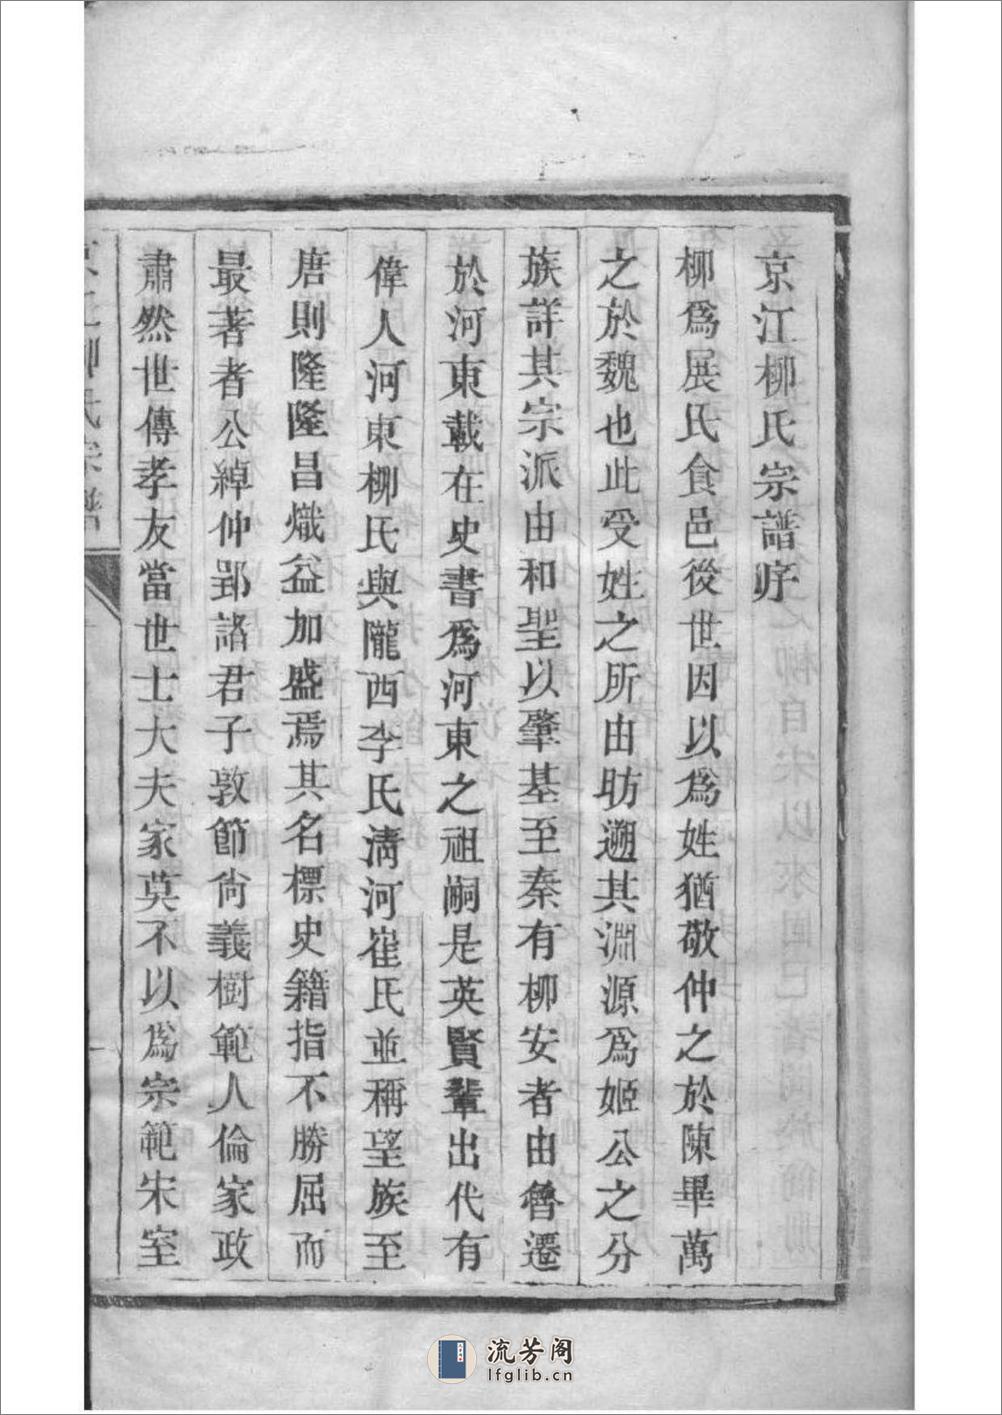 京江柳氏宗譜序
柳爲展氏食邑後世因以爲姓猶敬仲之於陳畢萬
之於魏也此受姓之所由昉遡其淵源爲姬公之分
族詳其宗派由和聖以肇基至秦有柳安者由魯遷
於河東載在史書爲河東之祖嗣是英賢輩出代有
偉人河東柳氏與隴西李氏淸河崔氏並稱望族至
唐則隆隆昌熾益加盛焉其名標史籍指不勝屈而
最著者公綽仲郢諸君子敦節尙義樹範人倫家政
肅然世傳孝友當世士大夫家莫不以爲宗範宋室
流芳阁
lfglib.cn